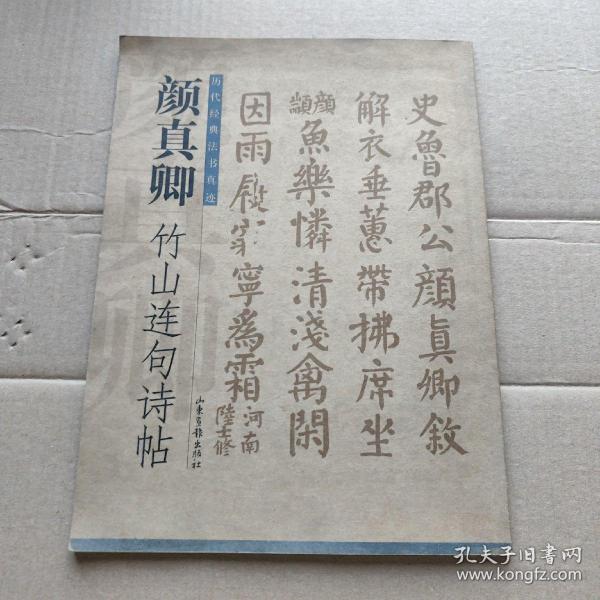 史魯郡公顔真卿叙
解衣垂蕙帶拂席坐
顔顓
魚樂憐清淺禽閑
因雨屐穿寧爲霜
河南
陸士修
历代经典法书真迹
颜真卿
竹山连句诗帖
山东画报出版社
孔夫子旧书网
www.kongfz.com